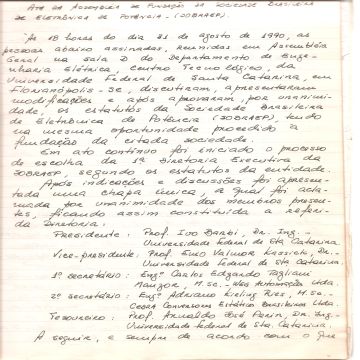 ATA DA ASSEMBLÉIA DE FUNDAÇÃO DA SOCIEDADE BRASILEIRA
DE ELETRÔNICA DE POTÊNCIA - (SOBRAEP)
Às 18 horas do dia 31 de agosto de 1990, as
pessoas abaixo assinadas, reunidas em Assembléia
Geral na sala D do Departamento de Enge-
nharia Elétrica, Centro Tecnológico, da
Universidade Federal de Santa Catarina, em
Florianópolis - SC, discutiram, apresentaram
modificações e após aprovaram, por unanimi-
dade, os estatutos da Sociedade Brasileira
de Eletrônica de Potência (SOBRAEP), tendo
na mesma oportunidade procedido à
fundação da citada sociedade.
Em ato contínuo foi iniciado o processo
de escolha da 1ª Diretoria Executiva da
SOBRAEP, segundo os estatutos da entidade.
Após indicações e discussões foi apresen-
tada uma chapa única, a qual foi acla-
mada por unanimidade dos membros presen-
tes, ficando assim constituída a referi-
da Diretoria:
Presidente: Prof. Ivo Barbi, Dr. Ing. -
Universidade Federal de Sta Catarina.
Vice-presidente: Prof. Enio Valmor Kassick, Dr. -
Universidade Federal de Sta Catarina.
1º Secretário: Engº Carlos Edgardo Tagliani
M.Sc. - Weg Automação Ltda.
2º Secretário: Engº Adriano Ries, M.Sc. -
Conversores Estáticos Brasileiros Ltda.
Tesoureiro: Prof. Arnaldo José Perin, Dr. Ing. -
Universidade Federal de Sta. Catarina.
A seguir, e sempre de acordo com o que